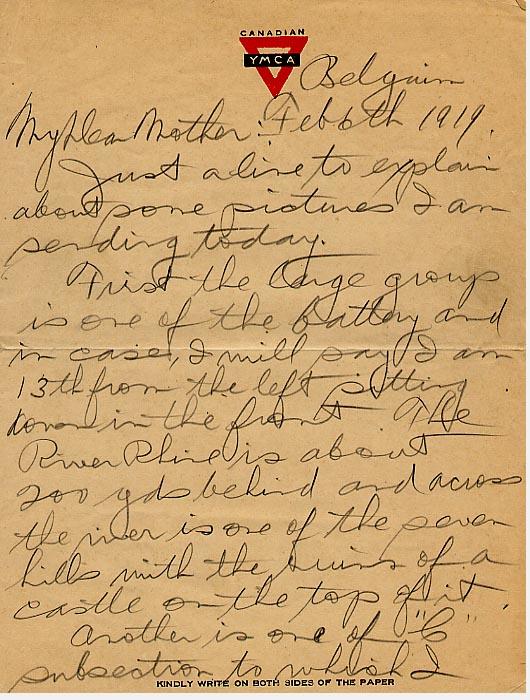 CANADIAN
YMCA
Belguim
My Dear Mother: Feb 6th 1919.
Just a line to explain
about some pictures I am
sending today.
First the large group
is one of the battery and
in case, I will say I am
13th from the left sitting
down in the front The
River Rhine is about
200 yds behind and across
the river is one of the seven
hills with the ruins of a
castle on the top of it.
Another is one of "C"
subsection to which I
KINDLY WRITE ON BOTH SIDES OF THE PAPER